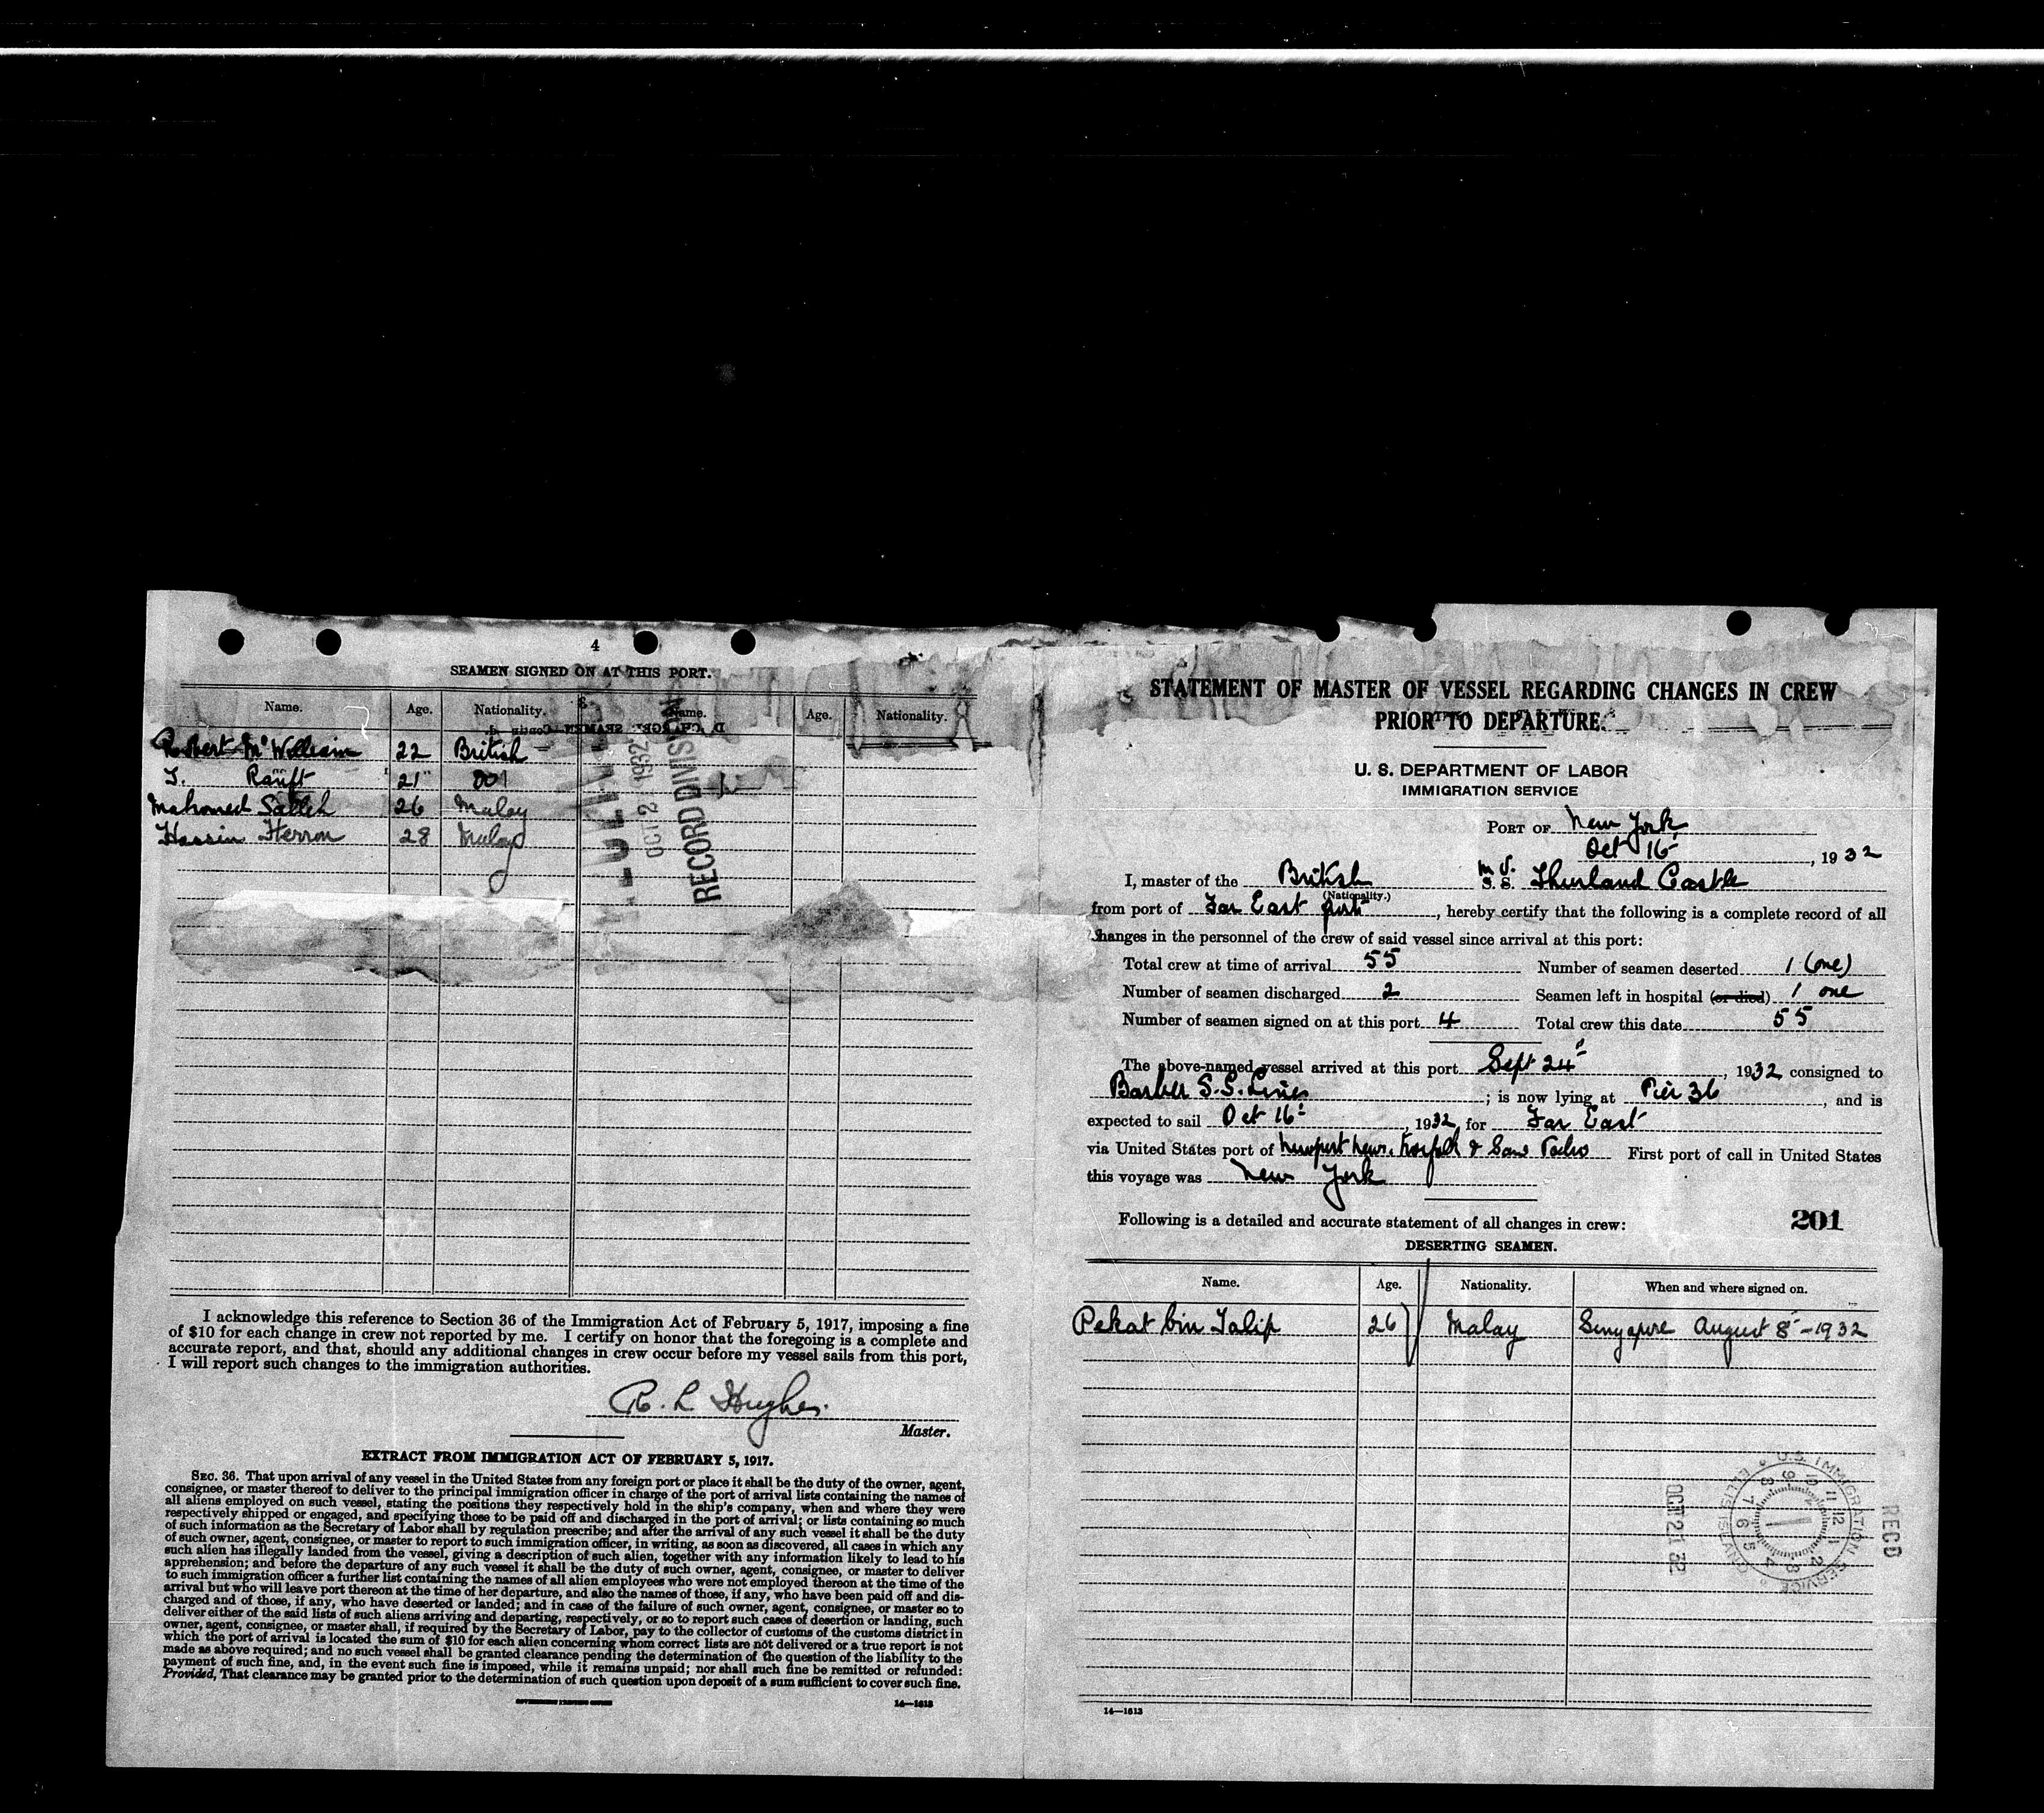 4
SEAMEN SIGNED ON AT THIS PORT.
Name. Age. Nationality. Name. Age. Nationality.
Robert McWilliam 22 British
21 do
Mahomed Salleh 26 Malay
Hassin Herron 28 Malay
OCT 2 1932
RECORD DIVISION
I acknowledge this reference to Section 36 of the Immigration Act of February 5, 1917, imposing a fine
of $10 for each change in crew not reported by me. I certify on honor that the foregoing is a complete and
accurate report, and that, should any additional changes in crew occur before my vessel sails from this port,
I will report such changes to the immigration authorities.
R. L Hughes.
Master.
EXTRACT FROM IMMIGRATION ACT OF FEBRUARY 5, 1917.
SEC. 36. That upon arrival of any vessel in the United States from any foreign port or place it shall be the duty of the owner, agent,
consignee, or master thereof to deliver to the principal immigration officer in charge of the port of arrival lists containing the names of
all aliens employed on such vessel, stating the positions they respectively hold in the ship's company, when and where they were
respectively shipped or engaged, and specifying those to be paid off and discharged in the port of arrival; or lists containing so much
of such information as the Secretary of Labor shall by regulation prescribe; and after the arrival of any such vessel it shall be the duty
of such owner, agent, consignee, or master to report to such immigration officer, in writing, as soon as discovered, all cases in which any
such alien has illegally landed from the vessel, giving a description of such alien, together with any information likely to lead to his
apprehension; and before the departure of any such vessel it shall be the duty of such owner, agent, consignee, or master to deliver
to such immigration officer a further list containing the names of all alien employees who were not employed thereon at the time of the
arrival but who will leave port thereon at the time of her departure, and also the names of those, if any, who have been paid off and dis-
charged and of those, if any, who have deserted or landed; and in case of the failure of such owner, agent, consignee, or master so to
deliver either of the said lists of such aliens arriving and departing, respectively, or so to report such cases of desertion or landing, such
owner, agent, consignee, or master shall, if required by the Secretary of Labor, pay to the collector of customs of the customs district in
which the port of arrival is located the sum of $10 for each alien concerning whom correct lists are not delivered or a true report is not
made as above required; and no such vessel shall be granted clearance pending the determination of the question of the liability to the
payment of such fine, and, in the event such fine is imposed, while it remains unpaid; nor shall such fine be remitted or refunded:
Provided, That clearance may be granted prior to the determination of such question upon deposit of a sum sufficient to cover such fine.
GOVERNMENT PRINTING OFFICE 14—1613
STATEMENT OF MASTER OF VESSEL REGARDING CHANGES IN CREW
PRIOR TO DEPARTURE
U. S. DEPARTMENT OF LABOR
IMMIGRATION SERVICE
PORT OF New York
Oct 16, 1932
I, master of the British M.V. S. S. Thurland Castle
(Nationality.)
from port of Far East port, hereby certify that the following is a complete record of all
changes in the personnel of the crew of said vessel since arrival at this port:
Total crew at time of arrival 55 Number of seamen deserted 1 (one)
Number of seamen discharged 2 Seamen left in hospital (or died) 1 one
Number of seamen signed on at this port 4 Total crew this date 55
The above-named vessel arrived at this port Sept 24, 1932 consigned to
Barber S.S. Lines; is now lying at Pier 36, and is
expected to sail Oct 16, 1932, for Far East
via United States port of Newport News, Norfolk & San Pedro First port of call in United States
this voyage was New York
Following is a detailed and accurate statement of all changes in crew: 201
DESERTING SEAMEN.
Name. Age. Nationality. When and where signed on.
Pekat bin Talip 26 Malay Singapore August 8 - 1932
RECD
U.S. IMMIGRATION SERVICE ELLIS ISLAND
OCT 21 32
14—1613